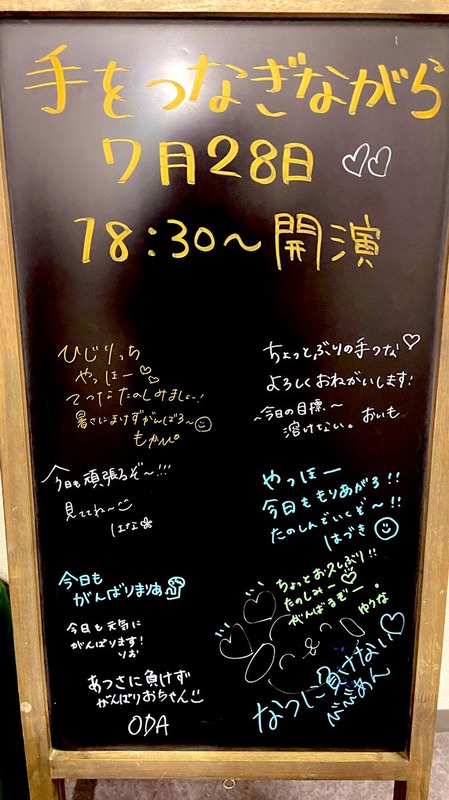 手をつなぎながら
7月28日
18:30～開演
ひじりっち
やっほー
てつなたのしみましょ〜!
暑さにまけずがんばろ〜
もかぴ
ちょっとぶりの手つな♡
よろしくおねがいします!
～今日の目標～
溶けない。 おいも
今日も頑張るぞ〜!!!
見ててね〜
はな
やっほー
今日ももりあがろ!!
たのしんでいくぞ〜!!
はづき
今日も
がんばりまりあ
ちょっとお久しぶり!!
たのしみー♡
がんばるぞー。
ゆうな
今日も元気に
がんばります!
りお
あつさに負けず
がんばりおちゃん
ODA
なつに負けない♡